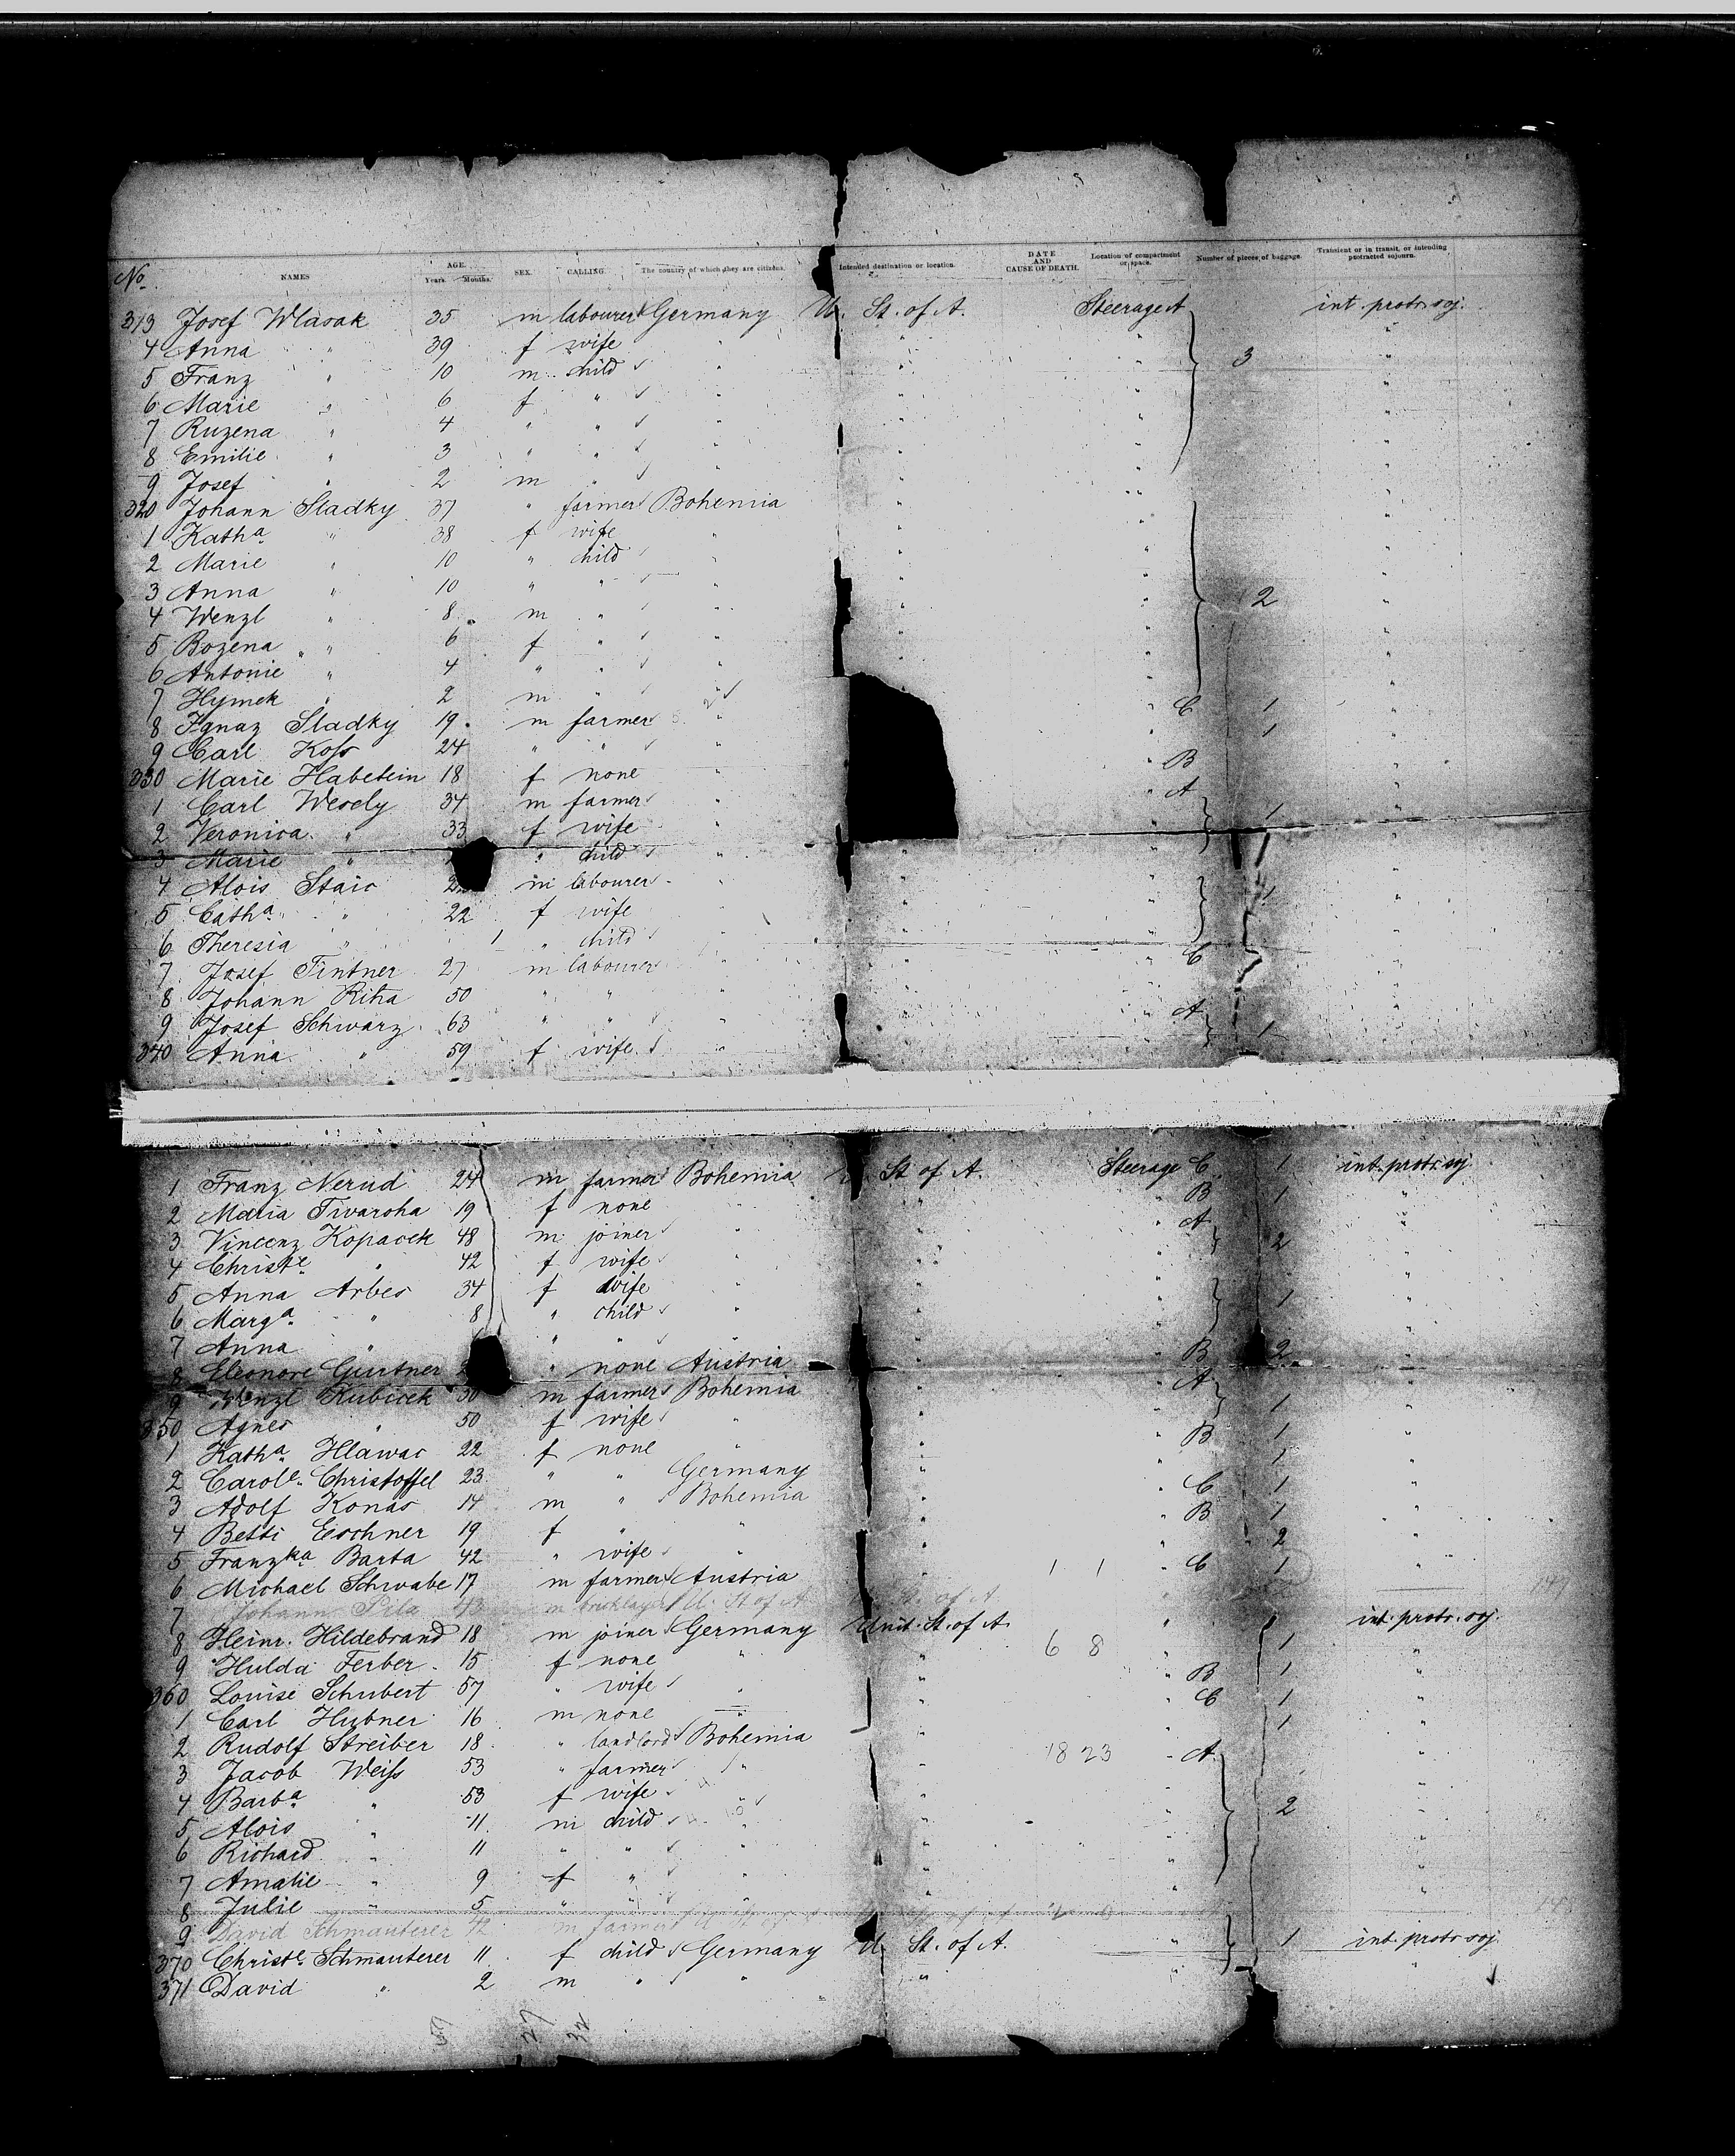 No. NAMES AGE. Years. Months. SEX. CALLING. The country of which they are citizens. Intended destination or location. DATE AND CAUSE OF DEATH. Location of compartment or space. Number of pieces of baggage. Transient or in transit, or intending protracted sojourn.
313 Josef Wlasak 35 m labourer Germany U. St. of A. Steerage A int. protr. soj.
4 Anna " 39 f wife " " " "
5 Franz " 10 m child " " " 3 "
6 Marie " 6 f " " " " "
7 Ruzena " 4 " " " " " "
8 Emilie " 3 " " " " " "
9 Josef " 2 m " " " " "
320 Johann Sladky 37 " farmer Bohemia " " "
1 Katha " 38 f wife " " " "
2 Marie " 10 " child " " " "
3 Anna " 10 " " " " " "
4 Wenzl " 8 m " " " " 2 "
5 Bozena " 6 f " " " " "
6 Antonie " 4 " " " " " "
7 Hymek " 2 m " " " "
8 Ignaz Sladky 19 m farmer " " C 1 "
9 Carl Koss 24 " " " " 1 "
330 Marie Habetein 18 f none " " B "
1 Carl Wesely 34 m farmer " " A "
2 Veronica " 33 f wife " " 1 "
3 Marie " " child " " " "
4 Alois Staic m labourer " " " "
5 Catha " 22 f wife " " " 1 "
6 Theresia " 1 " child " " " "
7 Josef Tintner 27 m labourer " " " C "
8 Johann Riha 50 " " " " " "
9 Josef Schwarz 63 " " " " " A "
340 Anna " 59 f wife " " " 1 "
1 Franz Nerud 24 m farmer Bohemia St. of A. Steerage C 1 int. protr. soj
2 Maria Tivaroha 19 f none " " " B 1 "
3 Vincenz Kopacek 48 m joiner " " " A "
4 Christe " 42 f wife " " " 2 "
5 Anna Arbes 34 f wife " " " "
6 Marga " 8 " child " " " 1 "
7 Anna " " " " " " "
8 Eleonore Gurtner " none Austria " " B 2 "
9 Wenzl Kubicek 50 m farmer Bohemia " " A "
350 Agnes " 50 f wife " " " 1 "
1 Katha Hlawac 22 f none " " " B 1 "
2 Carole Christoffel 23 " " Germany " " 1 "
3 Adolf Konas 14 m " Bohemia " " C 1 "
4 Betti Eschner 19 f " " " " B 1 "
5 Franzka Barta 42 " wife " " " 2 "
6 Michael Schwabe 17 m farmer Austria " 1 1 " C 1 "
7 Johann Pila 43 m bricklayer U. St. of A. St. of A. 147
8 Heinr. Hildebrand 18 m joiner Germany Unit. St. of A. " int. protr. soj.
9 Hulda Ferber 15 f none " " 6 8 " 1 "
360 Louise Schubert 57 " wife " " " B 1 "
1 Carl Hubner 16 m none " " " C 1 "
2 Rudolf Streiber 18 " landlord Bohemia " " 1 "
3 Jacob Weiss 53 " farmer " " 18 23 " A "
4 Barba " 53 f wife " " " "
5 Alois " 11 m child " " " 2 "
6 Richard " 11 " " " " " "
7 Amalie " 9 f " " " " "
8 Julie " 5 " " " " " "
9 David Schmauterer 42 m farmer U. St. of A
370 Christe Schmauterer 11 f child Germany U. St. of A. " 1 int. protr soj.
371 David " 2 m " " " " "
27 32